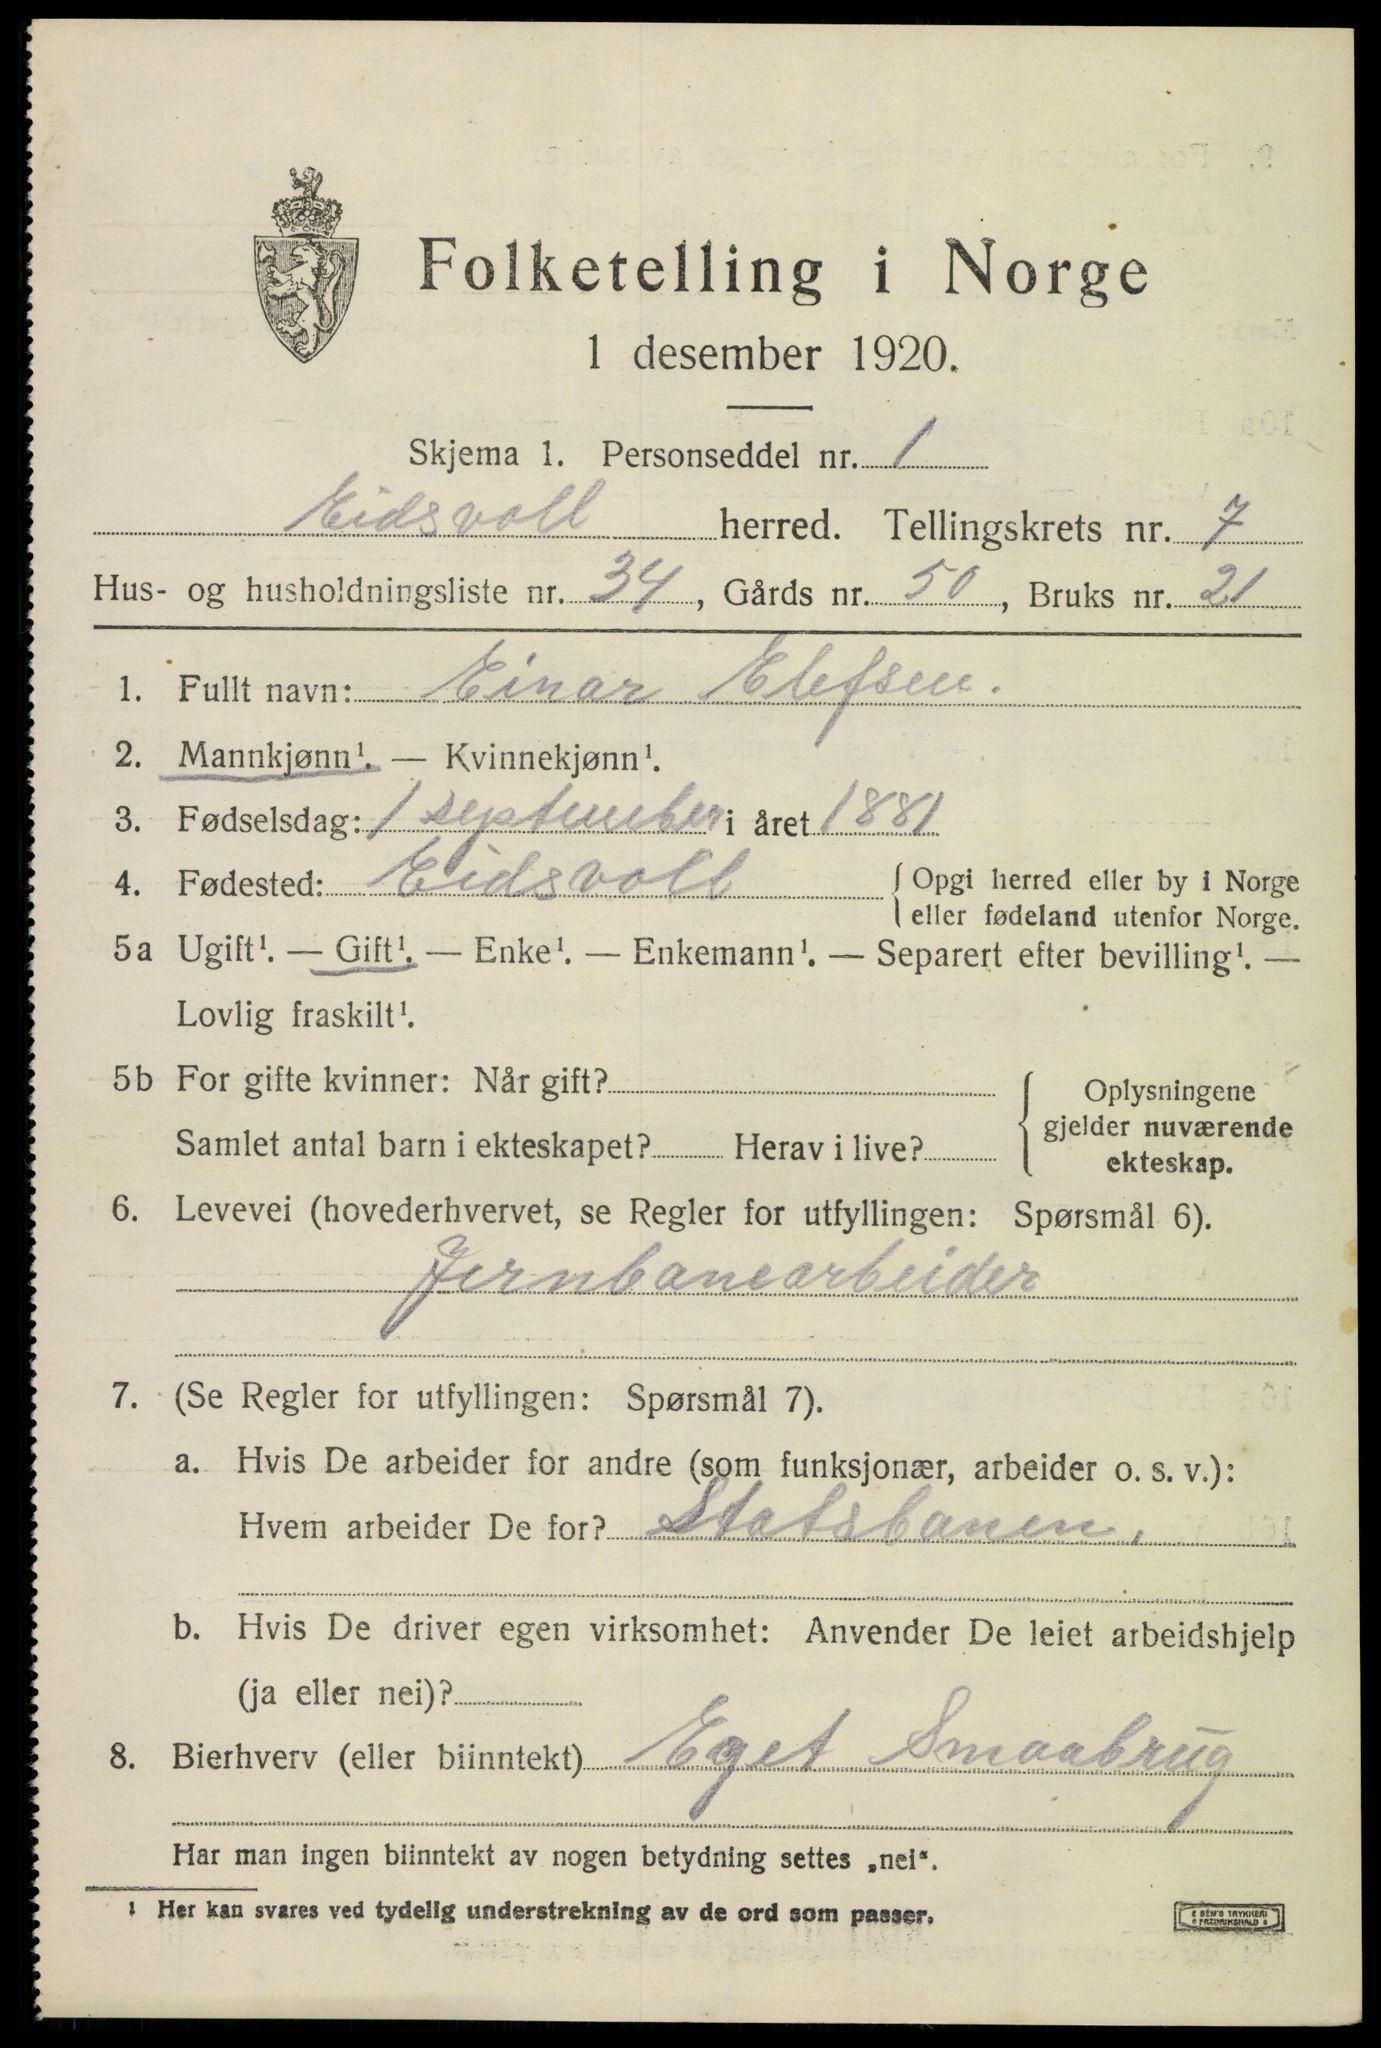 Folketelling i Norge
1 desember 1920.
Skjema 1. Personseddel nr. 1
Eidsvoll herred. Tellingskrets nr. 7
Hus- og husholdningsliste nr. 34, Gårds nr. 50, Bruks nr. 21
1. Fullt navn: Einar Elefsen.
2. Mannkjønn¹. — Kvinnekjønn¹.
3. Fødselsdag: 1 september i året 1881
4. Fødested: Eidsvoll { Opgi herred eller by i Norge
eller fødeland utenfor Norge.
5a Ugift¹. — Gift¹. — Enke¹. — Enkemann¹. — Separert efter bevilling¹. —
Lovlig fraskilt¹.
5b For gifte kvinner: Når gift?
Samlet antal barn i ekteskapet? Herav i live?
{ Oplysningene
gjelder nuværende
ekteskap.
6. Levevei (hovederhvervet, se Regler for utfyllingen: Spørsmål 6).
Jernbanearbeider
7. (Se Regler for utfyllingen: Spørsmål 7).
a. Hvis De arbeider for andre (som funksjonær, arbeider o. s. v.):
Hvem arbeider De for? Statsbanen.
b. Hvis De driver egen virksomhet: Anvender De leiet arbeidshjelp
(ja eller nei)?
8. Bierhverv (eller biinntekt) Eget Smaabrug
Har man ingen biinntekt av nogen betydning settes „nei“.
¹ Her kan svares ved tydelig understrekning av de ord som passer.
E SEM'S TRYKKERI
FREDRIKSHALD